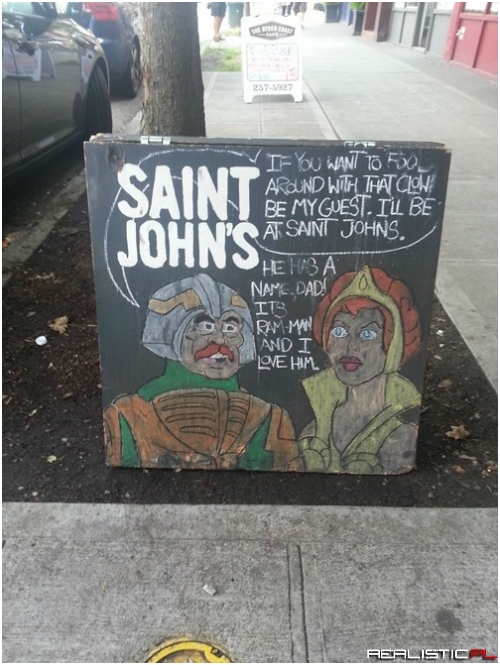 THE OTHER COAST
CAFE
257-5927
SAINT
JOHN'S
IF YOU WANT TO FOOL
AROUND WITH THAT CLOWN
BE MY GUEST. I'LL BE
AT SAINT JOHNS.
HE HAS A
NAME, DAD!
ITS
RAM-MAN
AND I
LOVE HIM.
REALISTIC.PL